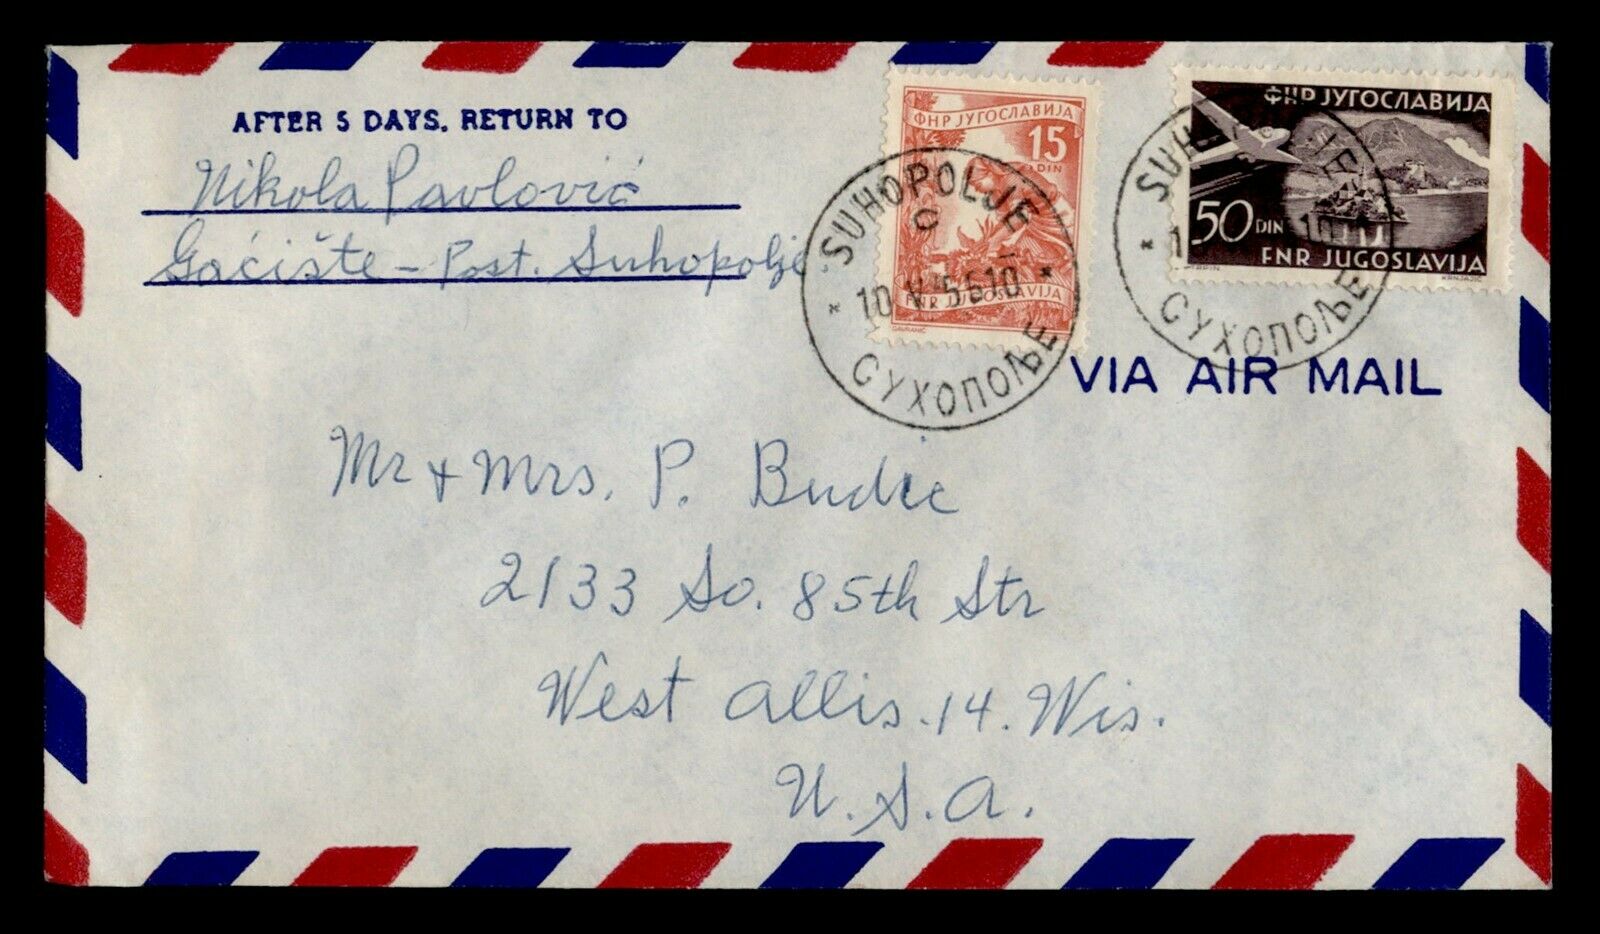 AFTER 5 DAYS, RETURN TO
Nikola Pavlović
Gaćište - Post. Suhopolje
ФНР ЈУГОСЛАВИЈА
15
DIN
FNR JUGOSLAVIJA
SUHOPOLJE
C
* 10 V 55 10 *
СУХОПОЉЕ
ФНР ЈУГОСЛАВИЈА
50 DIN
FNR JUGOSLAVIJA
KRNJAJIĆ
СУХОПОЉЕ
VIA AIR MAIL
Mr & Mrs. P. Budic
2133 So. 85th Str
West Allis. 14. Wis.
U.S.A.